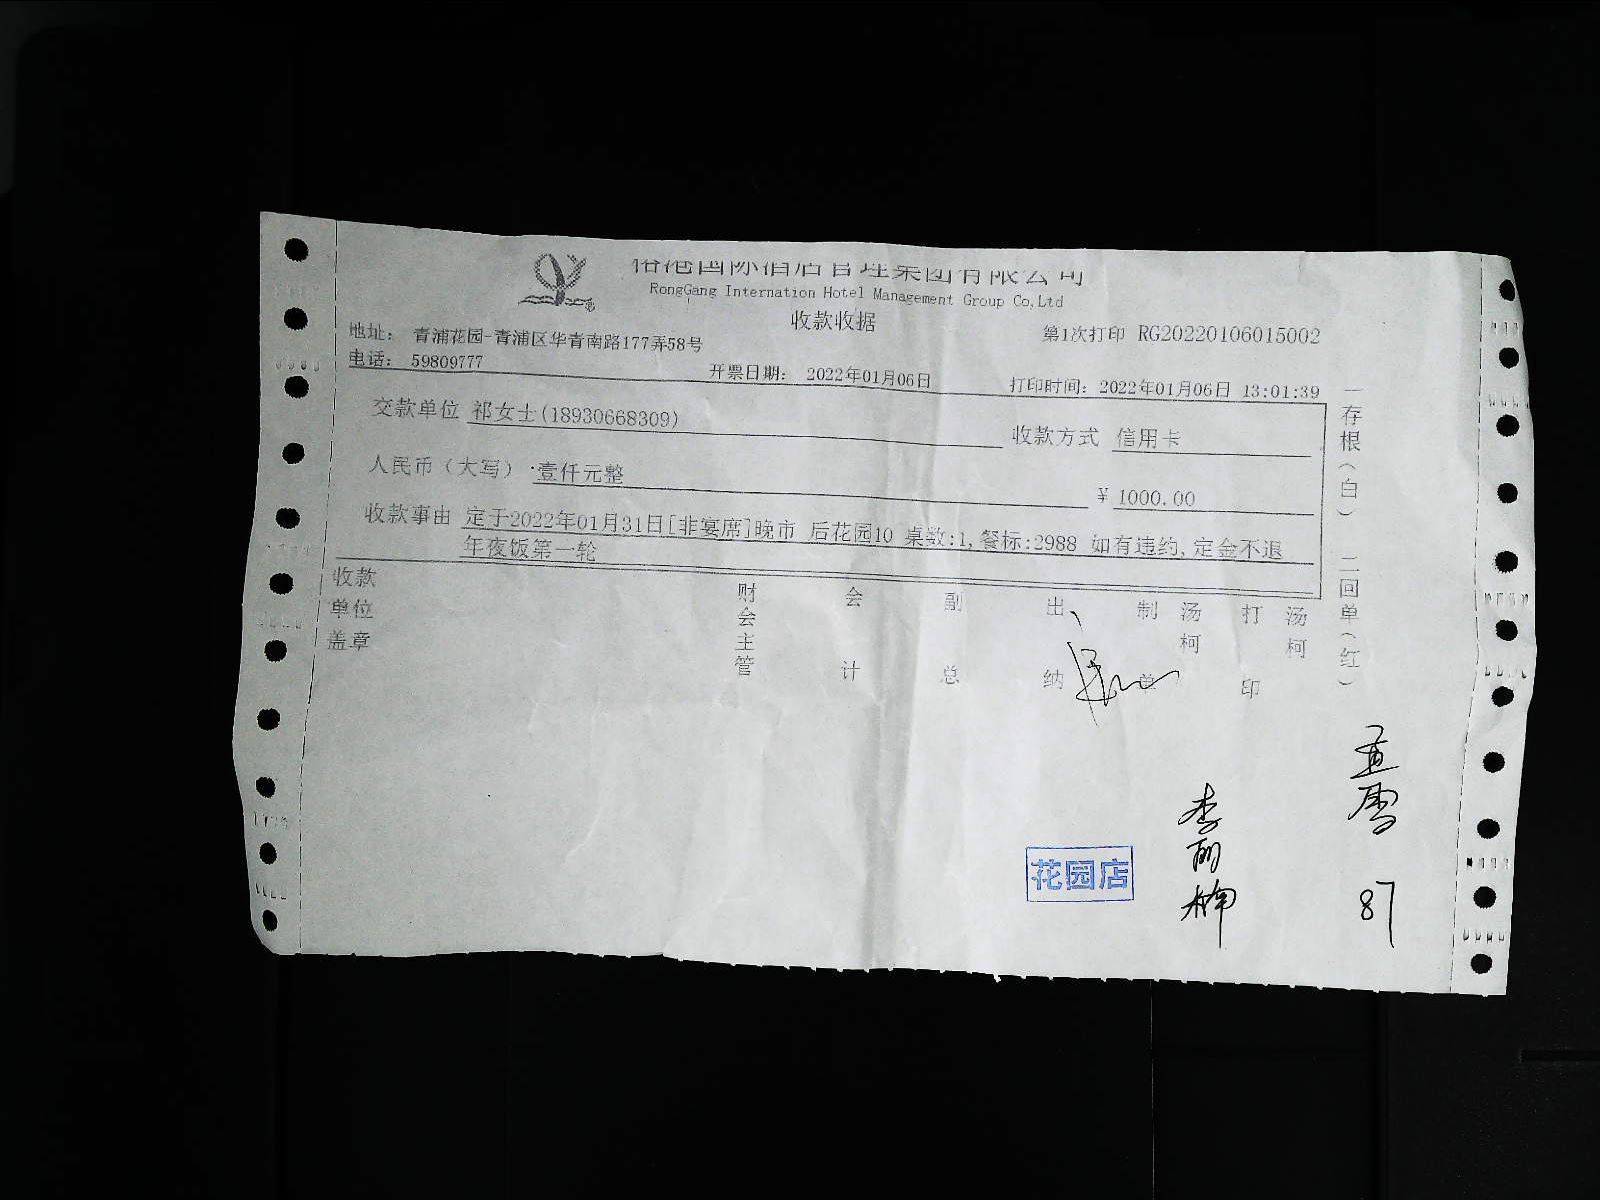 国际酒店管理集团有限公司
RongGang Internation Hotel Management Group Co,Ltd
收款收据
地址： 青浦花园-青浦区华青南路177弄58号
第1次打印 RG20220106015002
电话： 59809777
开票日期： 2022年01月06日
打印时间：2022年01月06日 13:01:39
交款单位 祁女士(18930668309)
收款方式 信用卡
人民币（大写） 壹仟元整
￥ 1000.00
收款事由 定于2022年01月31日[非宴席]晚市 后花园10 桌数:1,餐标:2988 如有违约,定金不退
年夜饭第一轮
收款单位盖章
财会主管
会计
副总
出纳
制单
汤柯
打印
汤柯
一存根（白） 二回单（红）
花园店
李丽楠
87